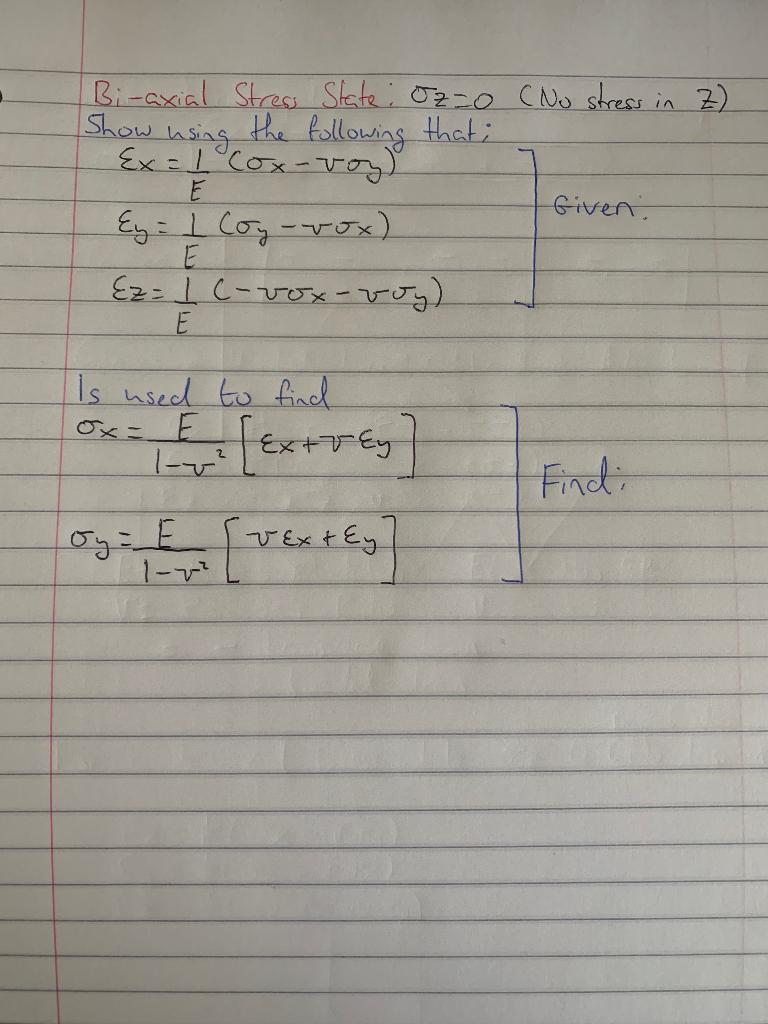 Bi-axial Stress State: σz=0 (No stress in Z)
Show using the following that:
εx = 1/E (σx - νσy)
εy = 1/E (σy - νσx)
Given:
εz = 1/E (-νσx - νσy)
Is used to find
σx = E/1-ν² [εx + νεy]
Find:
σy = E/1-ν² [νεx + εy]